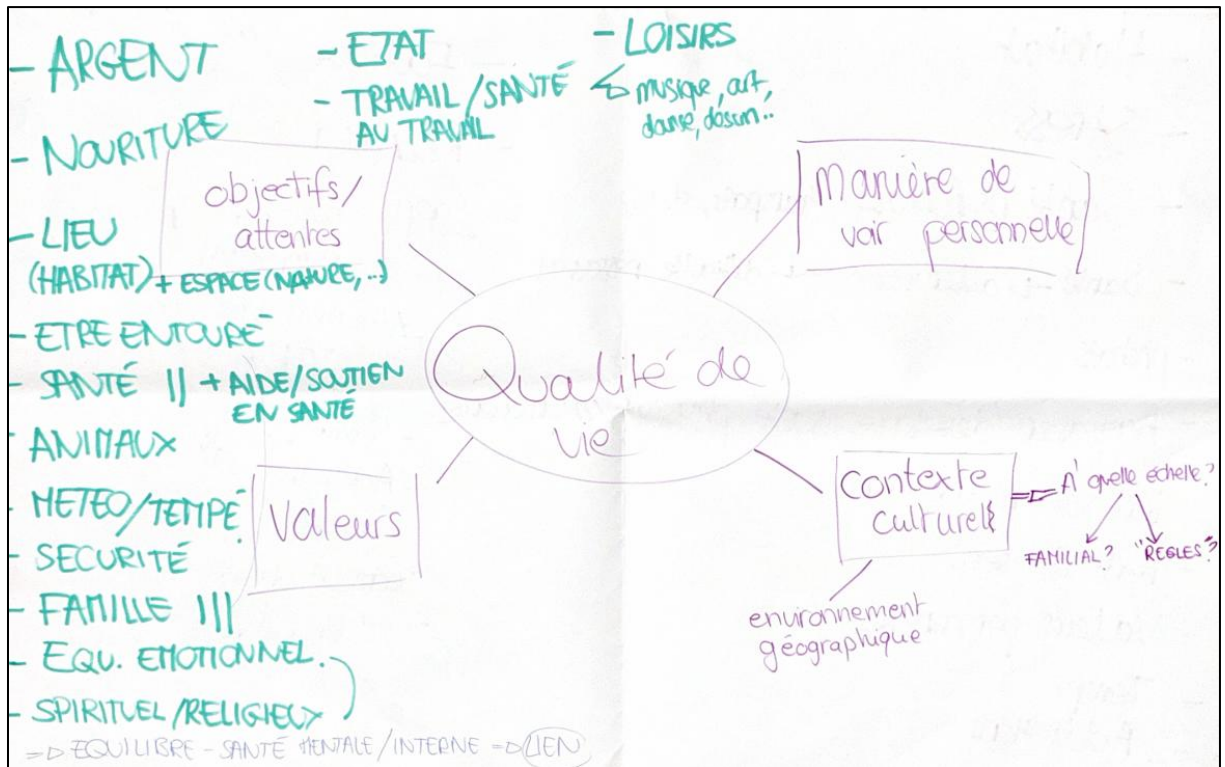 - ARGENT
- NOURITURE
- LIEU
(HABITAT) + ESPACE (NATURE, ..)
- ETRE ENTOURÉ
- SANTÉ || + AIDE/SOUTIEN
EN SANTÉ
- ANIMAUX
- METEO/TEMPÉ
- SECURITÉ
- FAMILLE |||
- EQU. EMOTIONNEL.
- SPIRITUEL/RELIGIEUX
=> EQUILIBRE - SANTÉ MENTALE/INTERNE => LIEN
- ETAT
- TRAVAIL/SANTÉ
AU TRAVAIL
- LOISIRS
musique, art,
danse, dessin..
objectifs/
attentes
Manière de
voir personnelle
Qualité de
vie
Valeurs
Contexte
culturel
=> A quelle échelle?
FAMILIAL? "REGLES"?
environnement
géographique